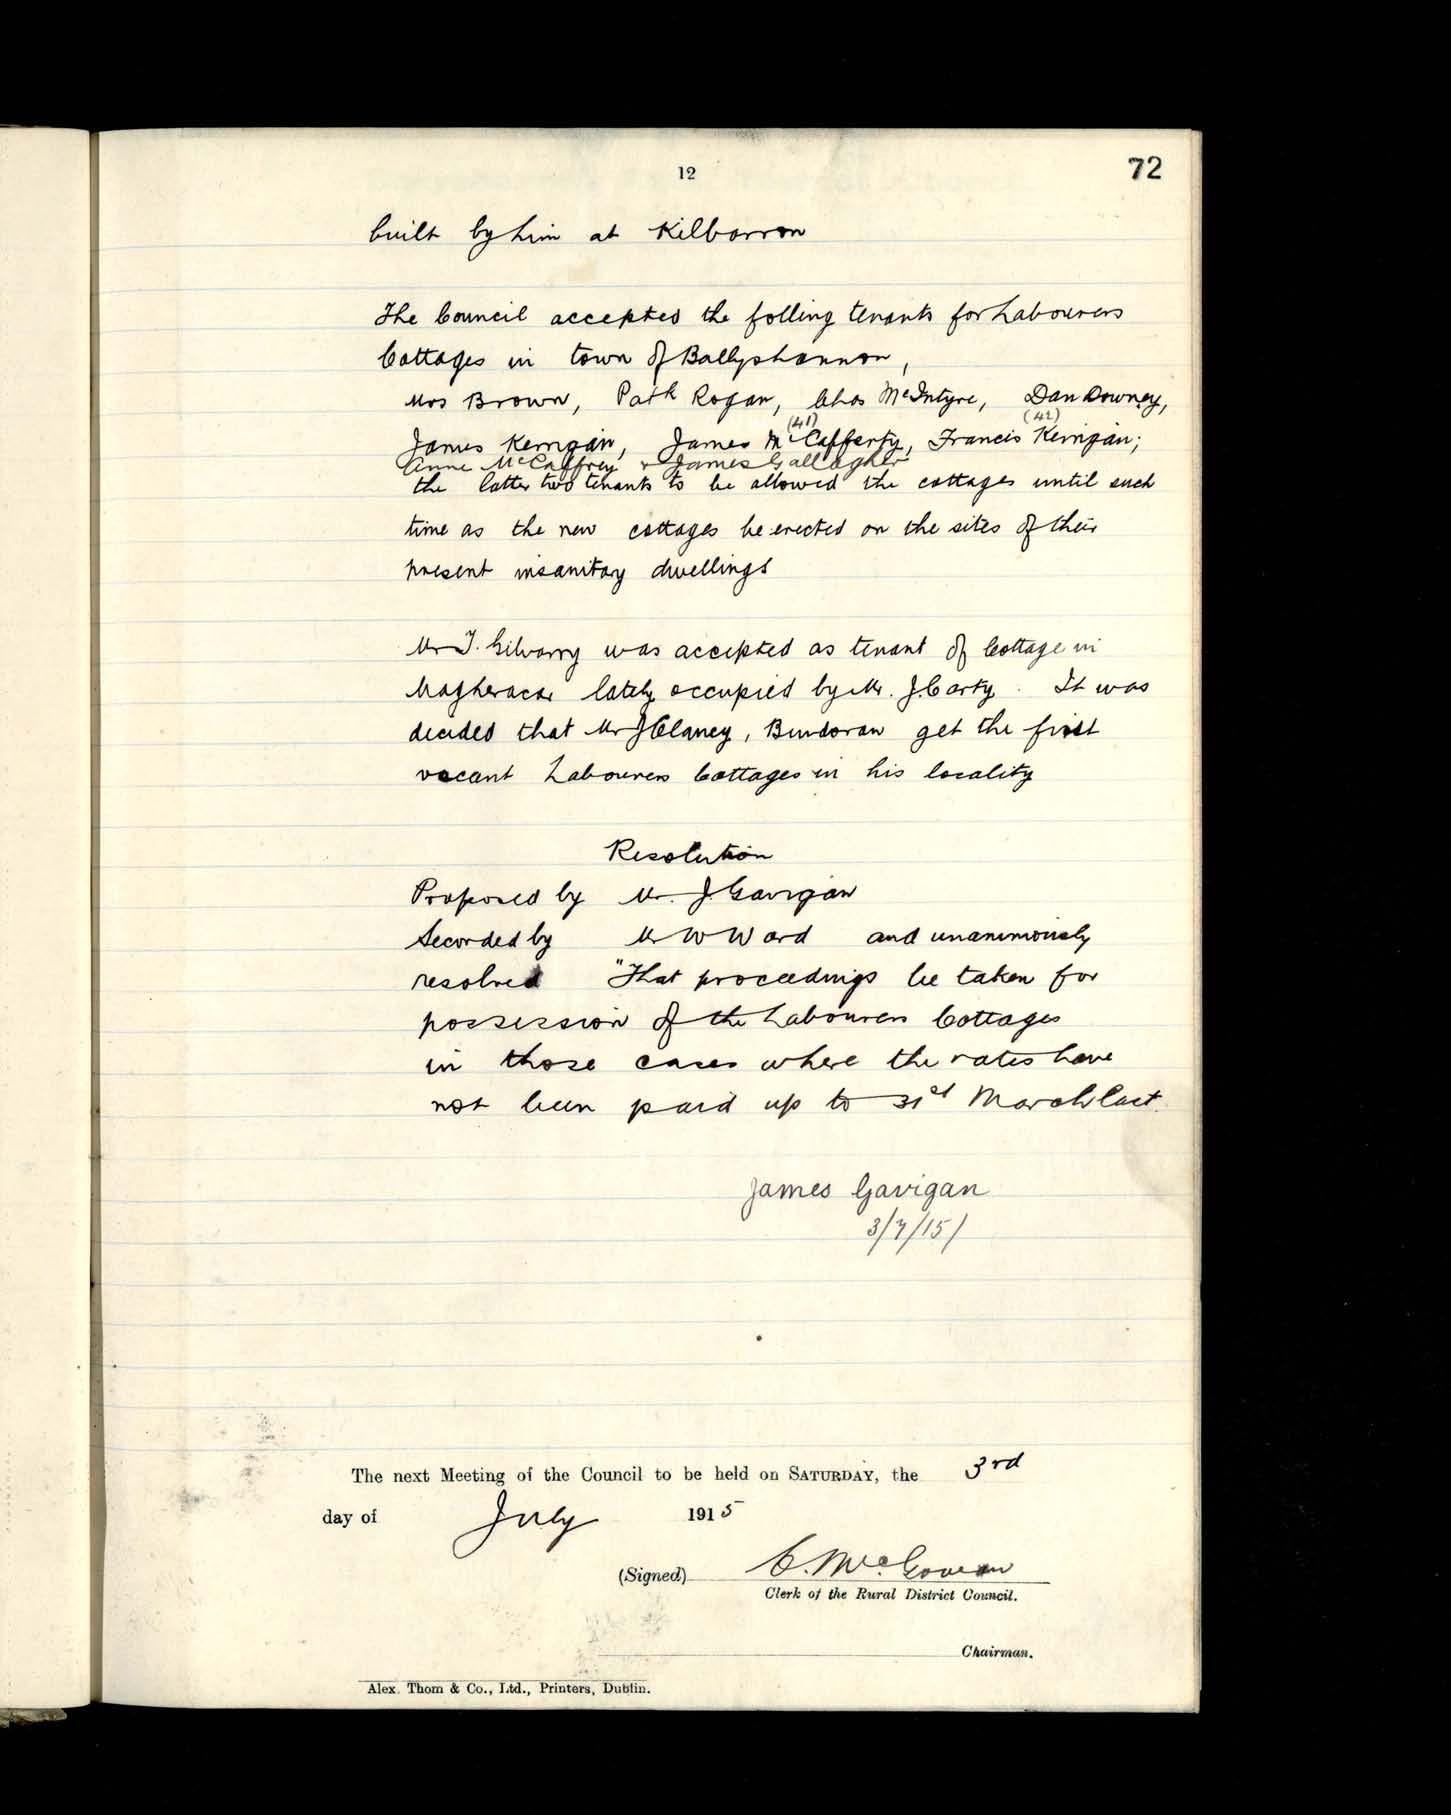 12
72
built by him at Kilbarron
The Council accepted the folling tenants for Labourers
Cottages in town of Ballyshannon,
Mrs Brown, Patk Rogan, Chas McIntyre, Dan Downey,
(41) (42)
James Kerrigan, James McCafferty, Francis Kerrigan;
Anne McCaffrey & James Gallagher
the latter two tenants to be allowed the cottages until such
time as the new cottages be erected on the sites of their
present insanitary dwellings
Mr T. Gilvarry was accepted as tenant of Cottage in
Magheracar lately occupied by Mr. J. Carty. It was
decided that Mr J Clancy, Bundoran get the first
vacant Labourers Cottages in his locality
Resolution
Proposed by Mr. J. Gavigan
Seconded by Mr W Ward and unanimously
resolved "That proceedings be taken for
possession of the Labourers Cottages
in those cases where the rates have
not been paid up to 31st March last.
James Gavigan
3/7/15/
The next Meeting of the Council to be held on SATURDAY, the 3rd
day of July 1915
(Signed) C. McGovern
Clerk of the Rural District Council.
Chairman.
Alex. Thom & Co., Ltd., Printers, Dublin.